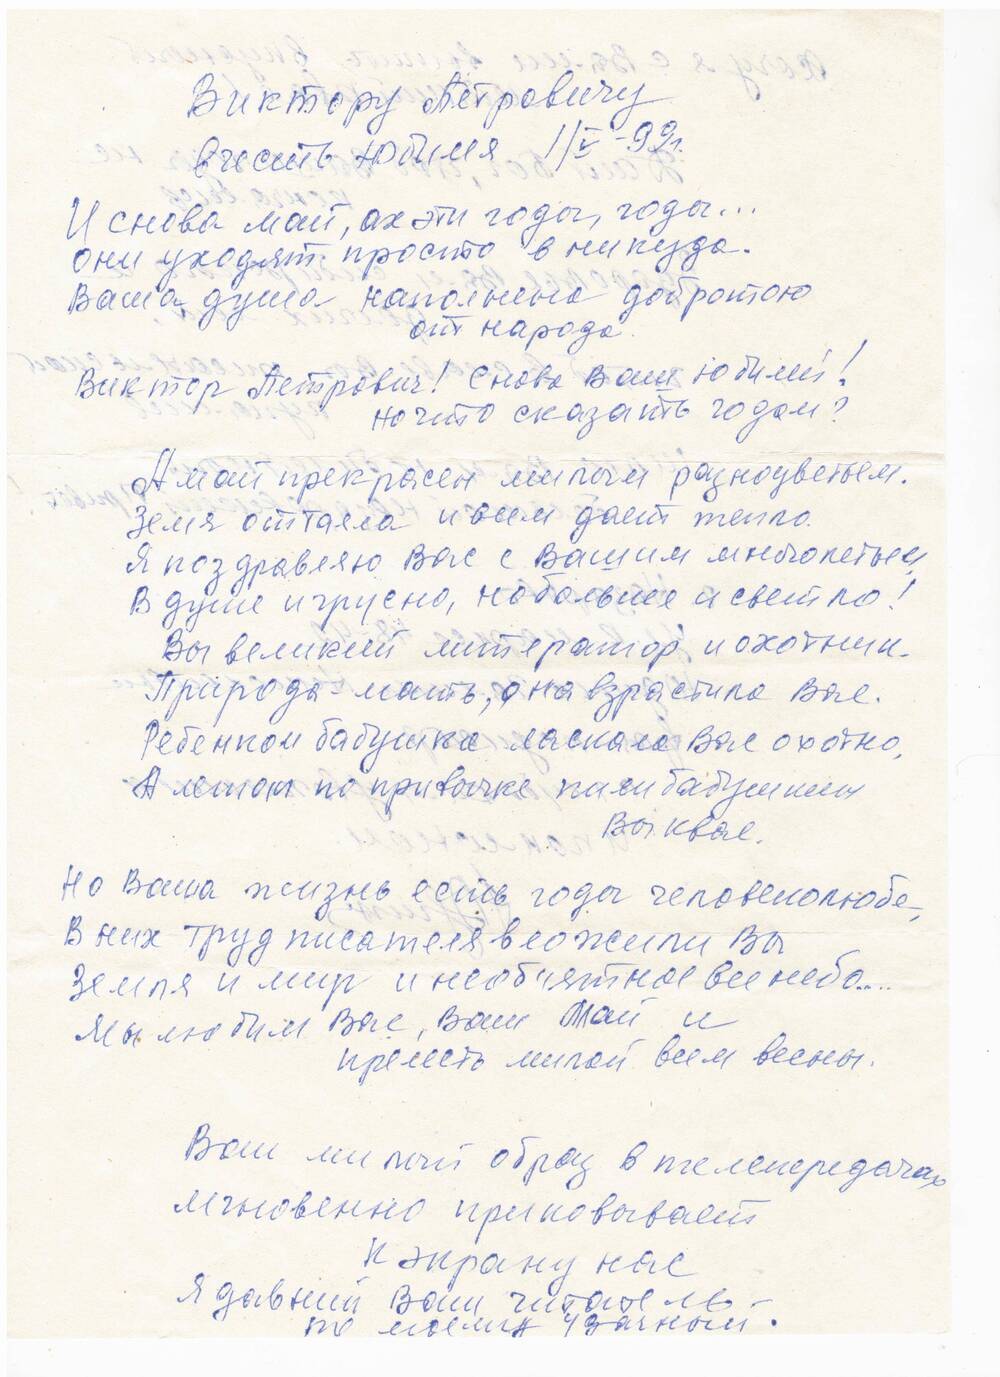 Виктору Петровичу
в честь юбилея 1/V-99г.
И снова май, ах эти годы, годы...
они уходят просто в никуда.
Ваша душа наполнена добротою
от народа.
Виктор Петрович! Снова Ваш юбилей!
но что сказать годам?
А май прекрасен милым разноцветьем.
Земля оттаяла и всем дает тепло.
Я поздравляю Вас с Вашим многолетьем,
В душе и грусно, но больше и светло!
Вы великий литератор и охотник.
Природа-мать, она взрастила Вас.
Ребенком бабушка ласкала Вас охотно,
А летом по привычке пили бабушкин
Вы квас.
Но Ваша жизнь есть годы человеколюбе,
В них труд писателя вложили Вы
Земля и мир и необъятное все небо....
Мы любим Вас, Ваш Май и
прелесть милой всем весны.
Ваш милый образ в телепередачах
мгновенно приковывает
к экрану нас
Я давний Ваш читатель-
удачный.